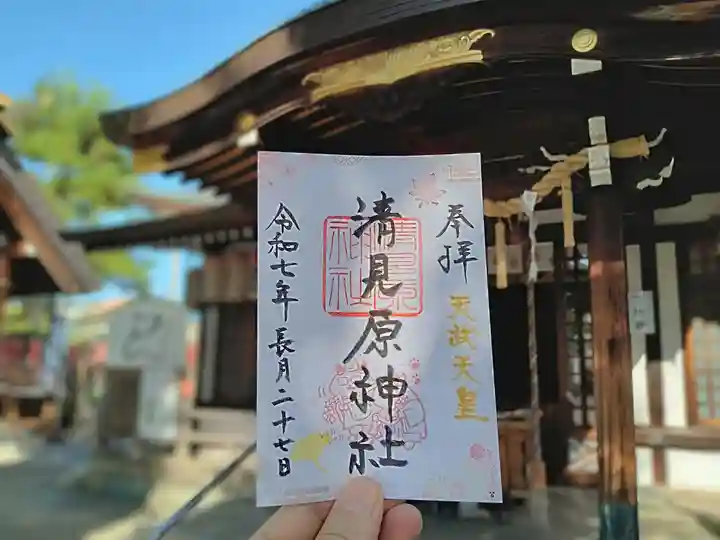 奉拝
天武天皇
清見原神社
令和七年 長月二十七日